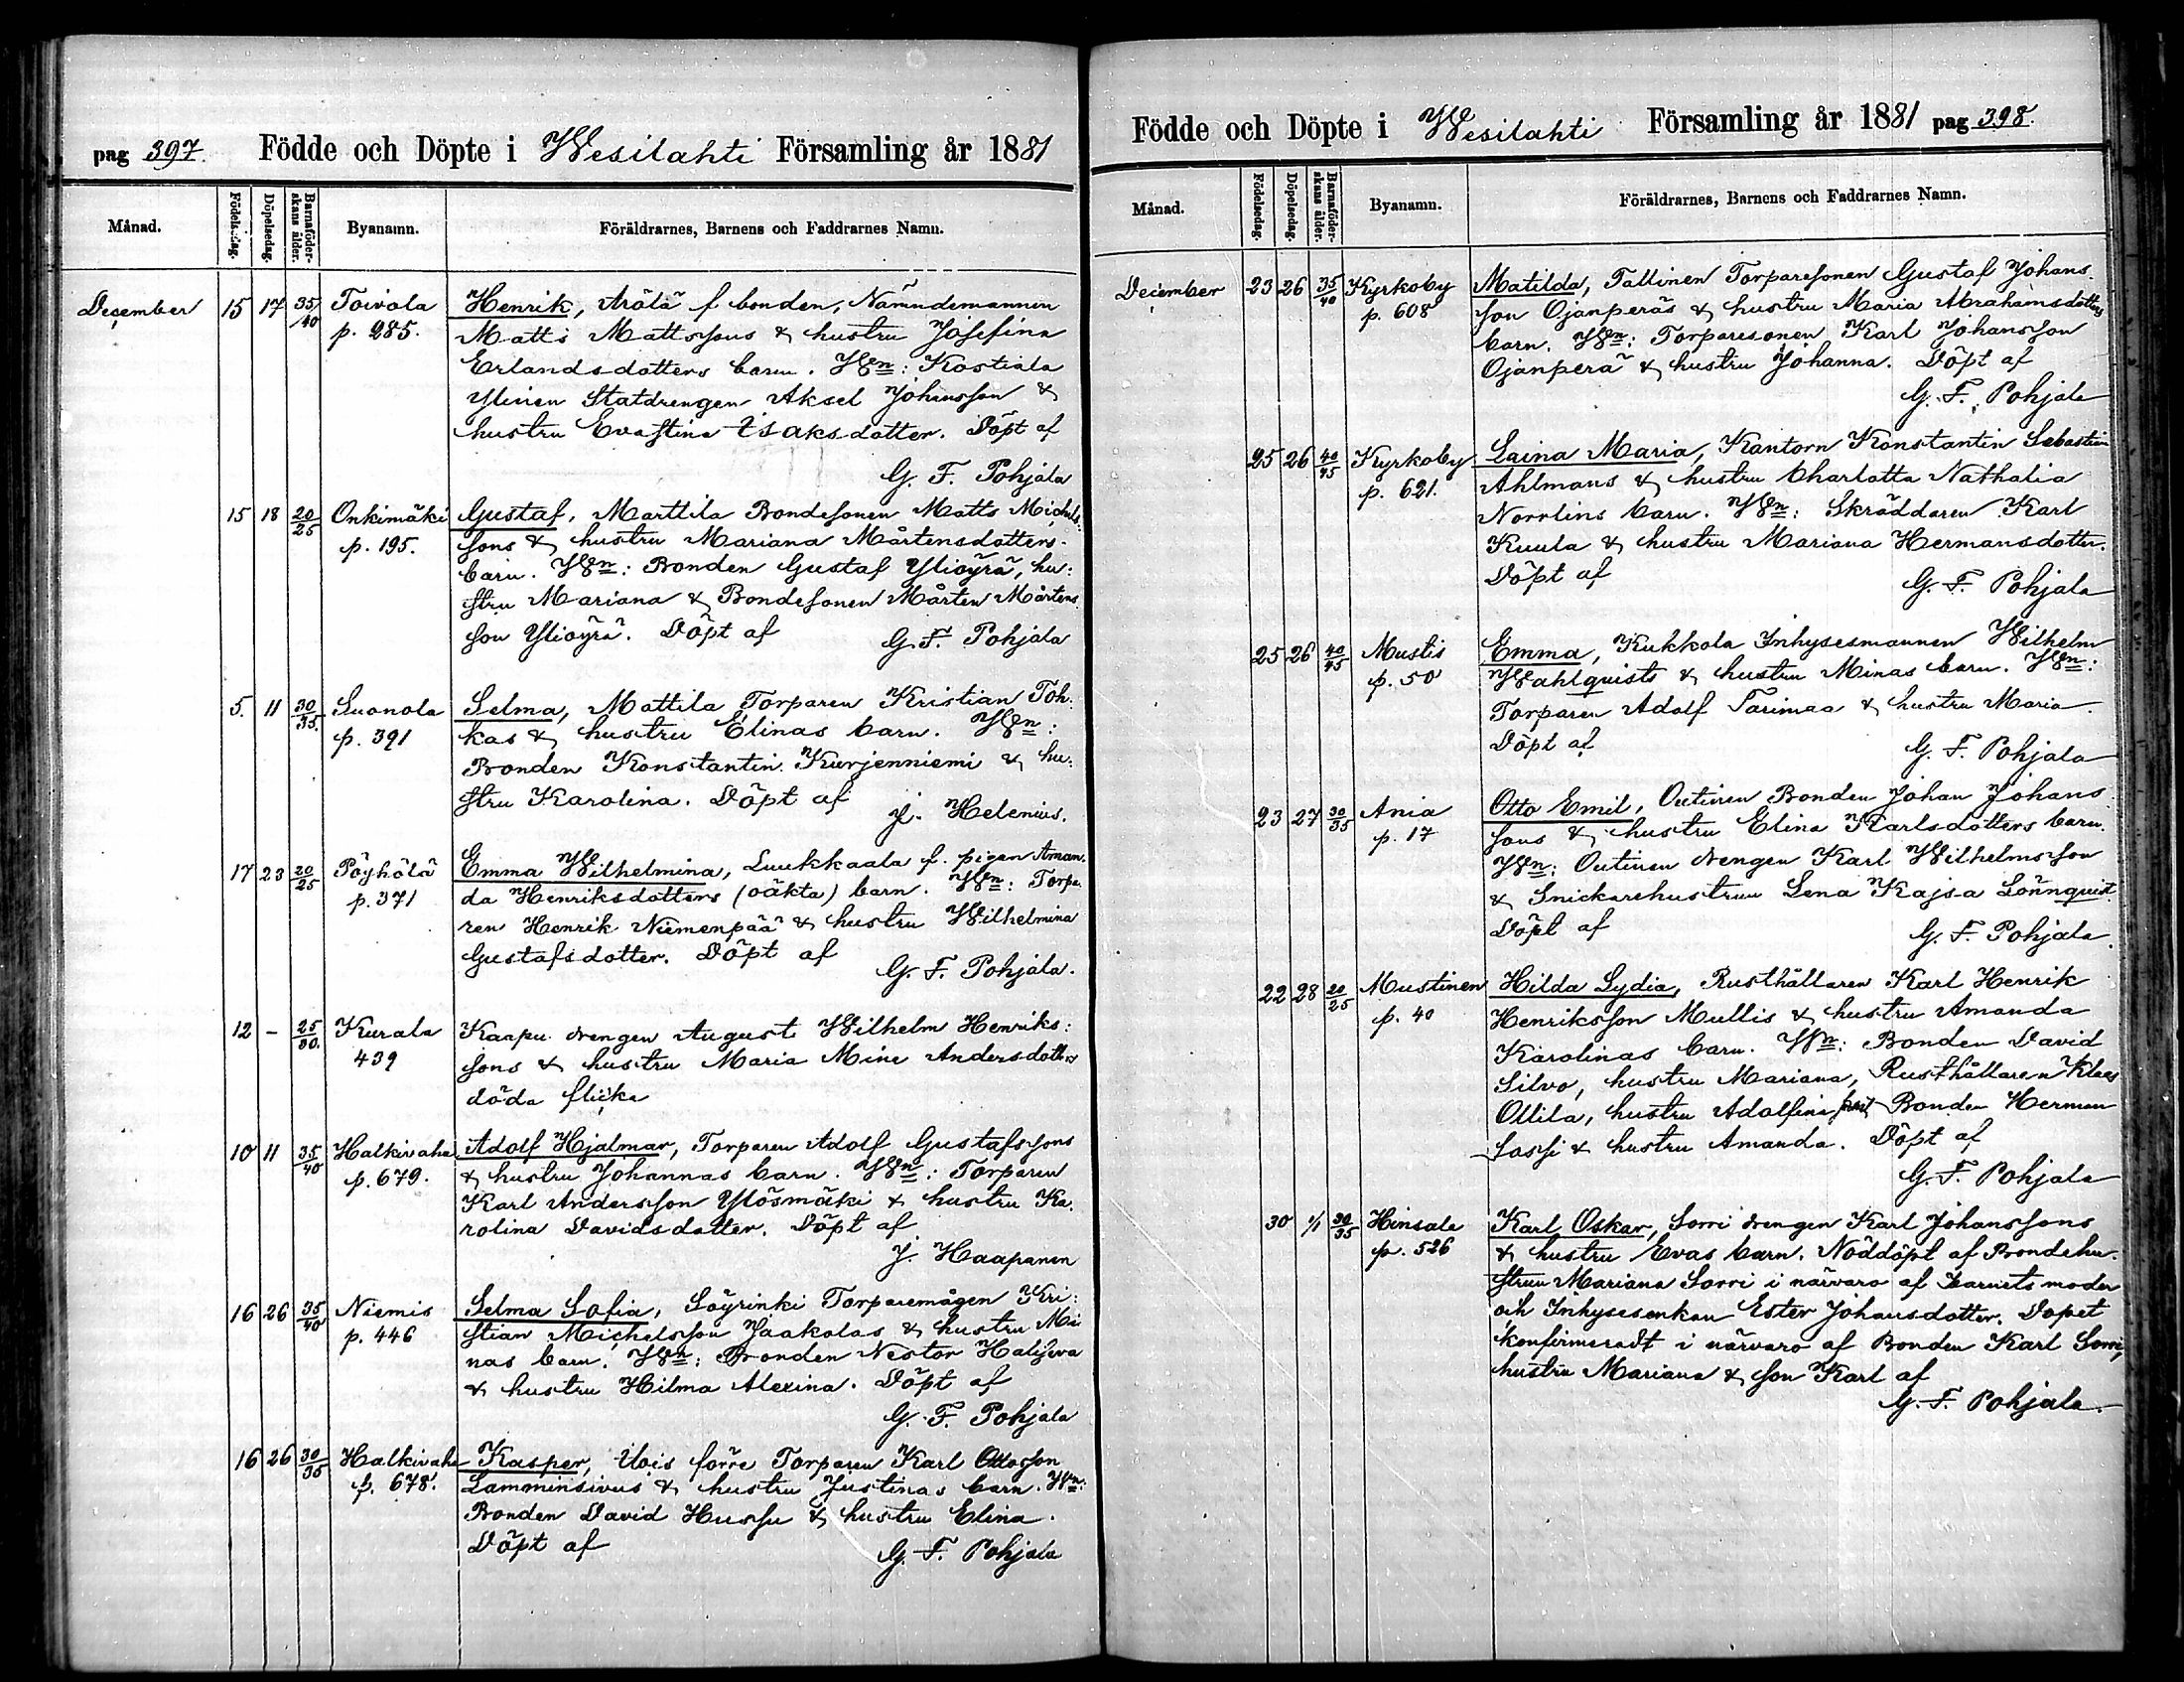 pag 397. Födde och Döpte i Wesilahti Församling år 1881
Månad. Födelsedag. Döpelsedag. Barnaföderskans ålder. Byanamn. Föräldrarnes, Barnens och Faddrarnes Namn.
December 15 17 35/40 Toivola Henrik, Arölä f bonden, Nämndemannen
p. 285. Matts Mattssons & hustru Josefina
Erlandsdotters barn. Wn: Kostiala
Ylinen Statdrengen Aksel Johansson &
hustru Evastina Isaksdotter. Döpt af
G. F. Pohjala
15 18 20/25 Onkimäki Gustaf, Marttila Bondesonen Matts Michels-
p. 195. sons & hustru Mariana Mårtensdotters
barn. Wn: Bonden Gustaf Ylioyrä, hu:
stru Mariana & Bondesonen Mårten Mårtens
son Ylioyrä. Döpt af G. F. Pohjala
5. 11 30/35. Suonola Selma, Mattila Torparen Kristian Toh.
p. 391 kas & hustru Elinas barn. Wn:
Bonden Konstantin Kurjenniemi & hu:
stru Karolina. Döpt af J. Helenius.
17 23 20/25 Pöyhölä Emma Wilhelmina, Luukkaala f. pigan Aman.
p. 371 da Henriksdotters (oäkta) barn. Wn: Torpa.
ren Henrik Niemenpää & hustru Wilhelmina
Gustafsdotter. Döpt af G. F. Pohjala.
12 - 25/30. Kurala Kaapu drengen August Wilhelm Henriks:
439 sons & hustru Maria Mina Andersdotters
döda flicka
10 11 35/40 Halkivaha Adolf Hjalmar, Torparen Adolf Gustafssons
p. 679. & hustru Johannas barn. Wn: Torparen
Karl Andersson Ylösmäki & hustru Ka.
rolina Davidsdotter. Döpt af
J. Haapanen
16 26 35/40 Niemis Selma Sofia, Löyrinki Torparemågen Kri:
p. 446 stian Michelsson Jaakolas & hustru Mi
nas barn. Wn: Bonden Nestor
& hustru Hilma Alexina. Döpt af
G. F. Pohjala
16 26 30/35 Halkivaha Kasper, Uois förre Torparen Karl Ottosson
p. 678. Lamminsivus & hustru Justinas barn. Wn:
Bonden David Hussu & hustru Elina.
Döpt af G. F. Pohjala
Födde och Döpte i Wesilahti Församling år 1881 pag 398.
Månad. Födelsedag. Döpelsedag. Barnaföderskans ålder. Byanamn. Föräldrarnes, Barnens och Faddrarnes Namn.
December 23 26 35/40 Kyrkoby Matilda, Tallinen Torparesonen Gustaf Johans.
p. 608 son Ojanperäs & hustru Maria Abrahamsdotters
barn. Wn: Torparesonen Karl Johansson
Ojanperä & hustru Johanna. Döpt af
G. F. Pohjala
25 26 40/45 Kyrkoby Laina Maria, Kantorn Konstantin Sebastian
p. 621. Ahlmans & hustru Charlotta Nathalia
Norrlins barn. Wn: Skräddaren Karl
Kuula & hustru Mariana Hermansdotter.
Döpt af G. F. Pohjala
25 26 40/45 Mustis Emma, Kukkola Inhysesmannen Wilhelm
p. 50 Wahlquists & hustru Minas barn. Wn:
Torparen Adolf Tarimaa & hustru Maria.
Döpt af G. F. Pohjala
23 27 30/35 Ania Otto Emil, Outinen Bonden Johan Johans
p. 17 sons & hustru Elina Karlsdotters barn.
Wn: Outinen drengen Karl Wilhelmsson
& Snickarehustrun Lena Kajsa Lönnquist.
Döpt af G. F. Pohjala.
22 28 20/25 Mustinen Hilda Lydia, Rusthållaren Karl Henrik
p. 40 Henriksson Mullis & hustru Amanda
Karolinas barn. Wn: Bonden David
Silvo, hustru Mariana, Rusthållaren Klaes
Ollila, hustru Adolfina, Bonden Herman
Sassi & hustru Amanda. Döpt af
G. F. Pohjala
30 1/1 30/35 Hinsala Karl Oskar, Sorri drengen Karl Johanssons
p. 526 & hustru Evas barn. Nöddöpt af Bondehu.
strun Mariana Sorri i närvaro af barnets moder
och Inhysesenkan Ester Johansdotter. Dopet
konfirmeradt i närvaro af Bonden Karl Sorri,
hustru Mariana & son Karl af
G. F. Pohjala.